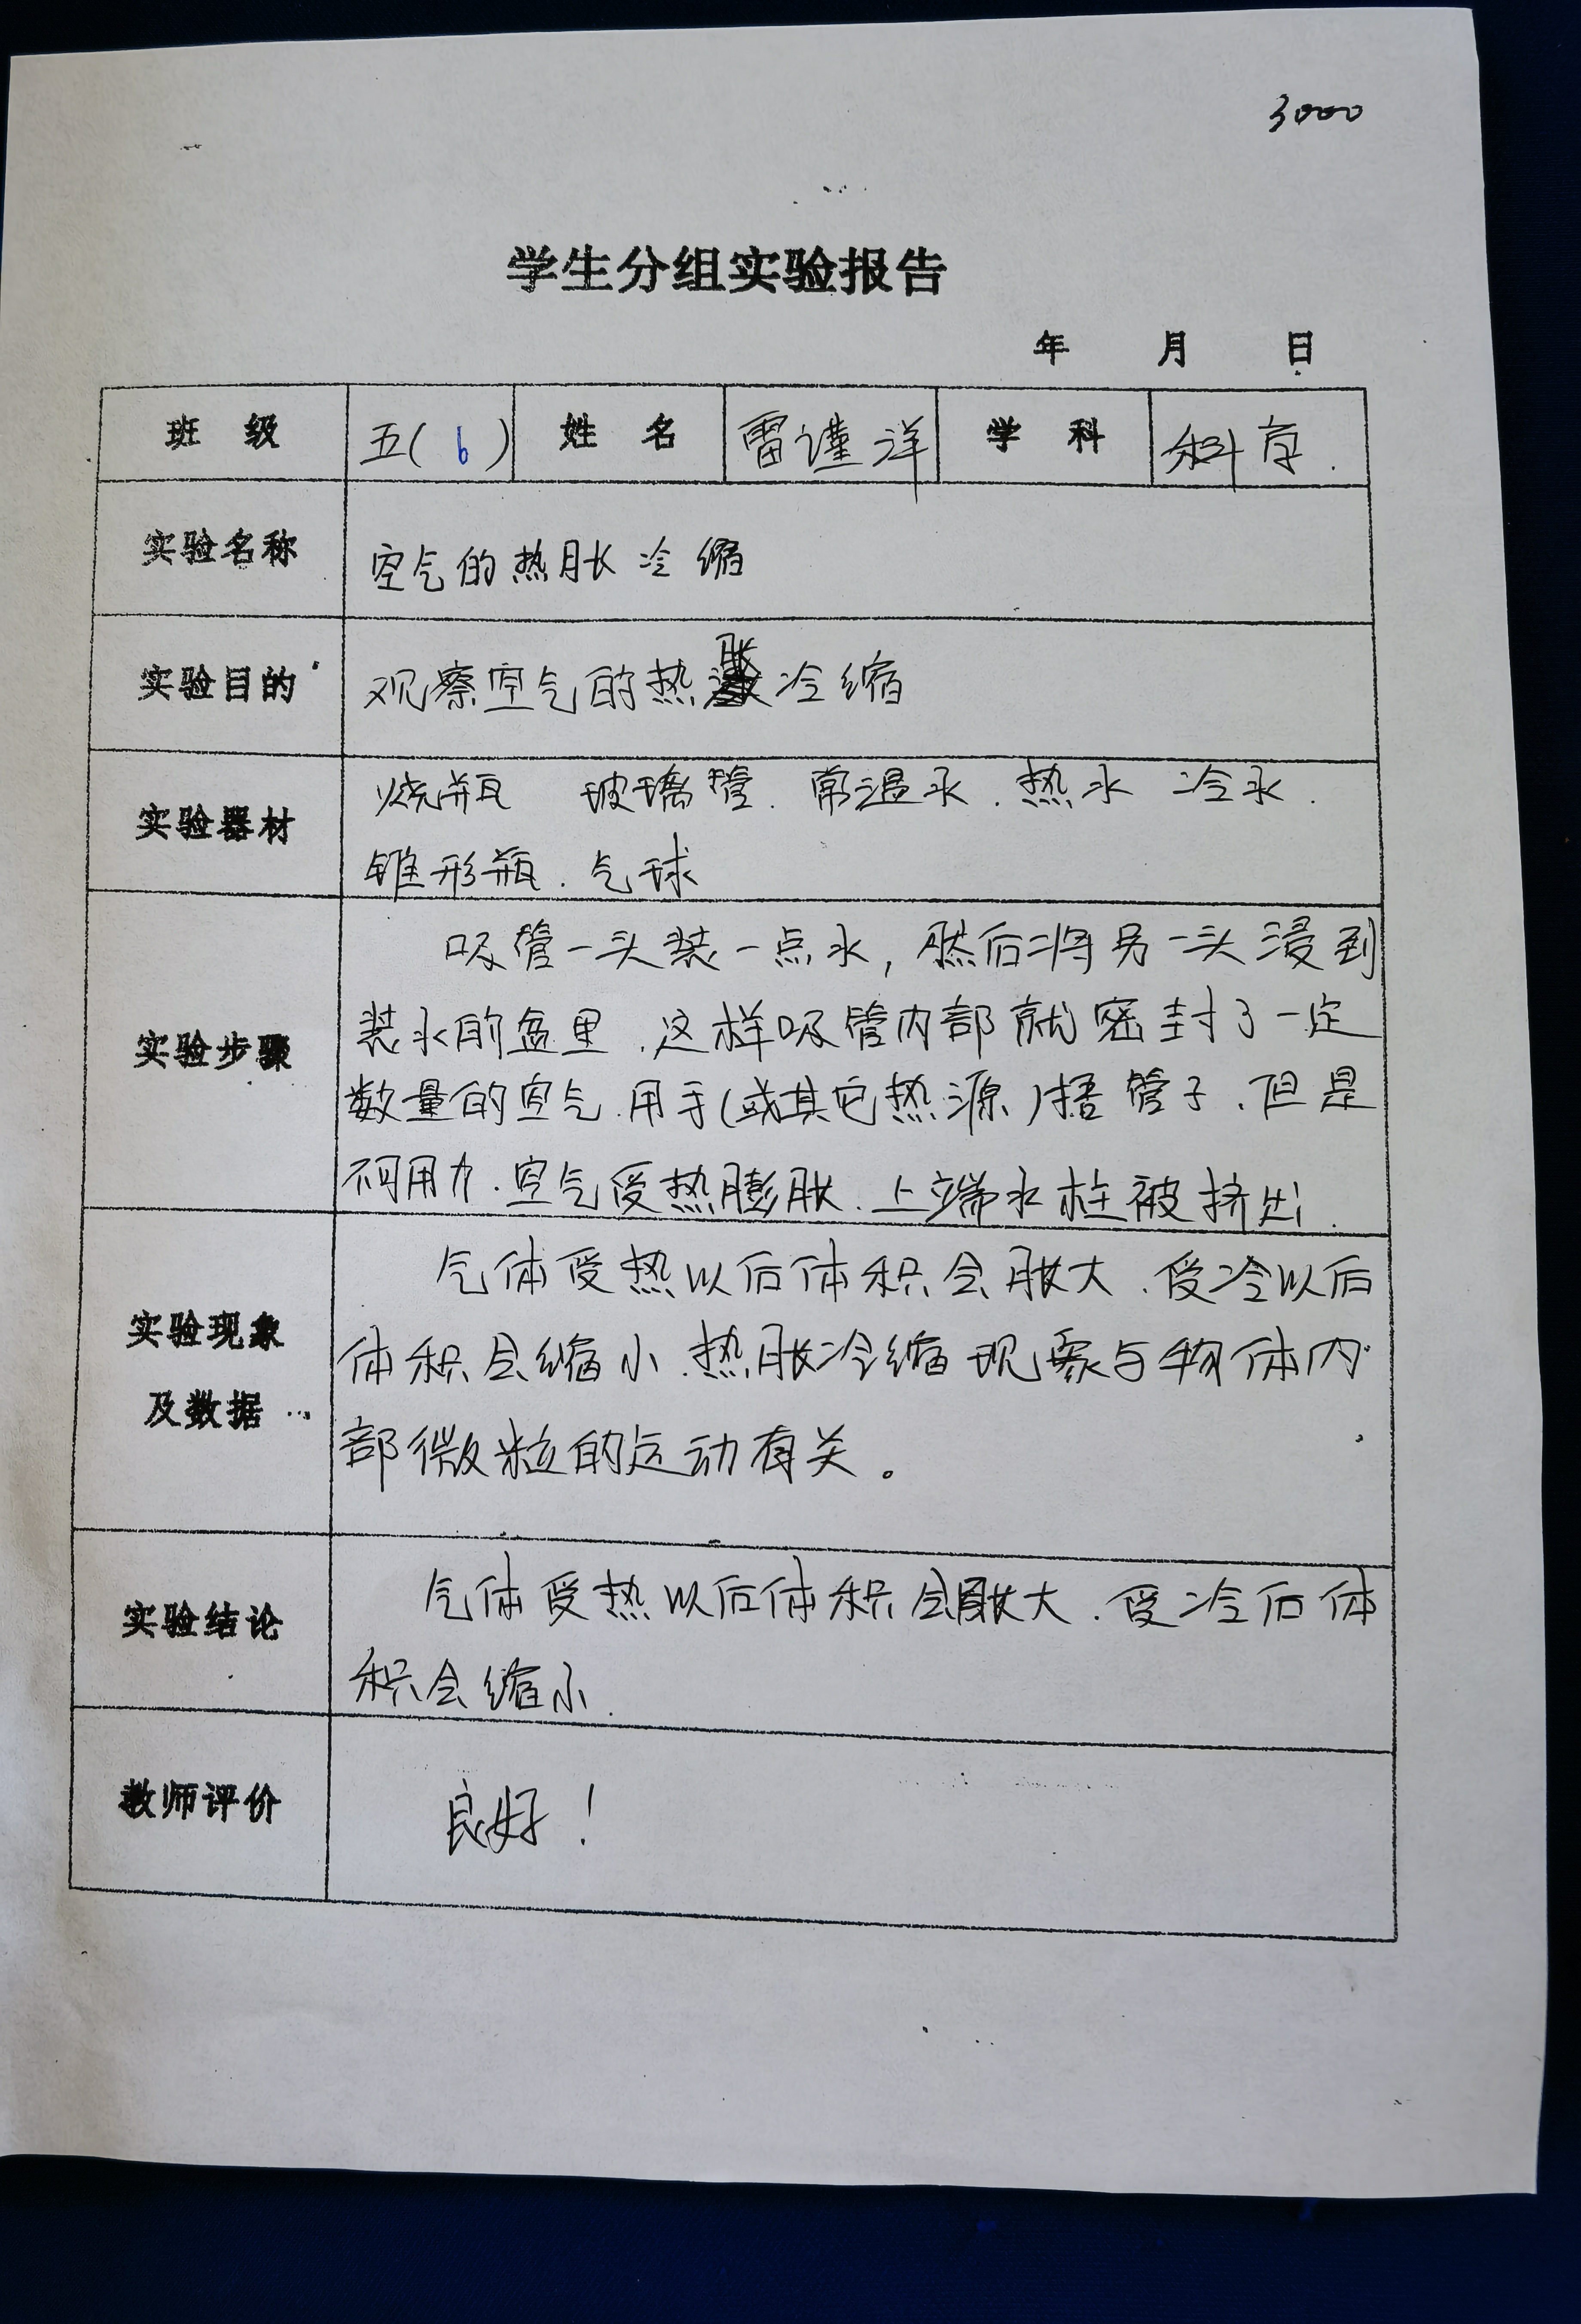 3000
学生分组实验报告
年 月 日
班 级 五(6) 姓 名 雷谨洋 学 科 科学.
实验名称 空气的热胀冷缩
实验目的 观察空气的热胀冷缩
实验器材 烧瓶 玻璃管.常温水.热水 冷水.
锥形瓶.气球
实验步骤 吸管一头装一点水,然后将另一头浸到
装水的盆里.这样吸管内部就密封了一定
数量的空气.用手(或其它热源)捂管子.但是
不可用力.空气受热膨胀.上端水柱被挤出.
实验现象及数据 气体受热以后体积会胀大.受冷以后
体积会缩小.热胀冷缩现象与物体内
部微粒的运动有关。
实验结论 气体受热以后体积会胀大.受冷后体
积会缩小.
教师评价 良好!